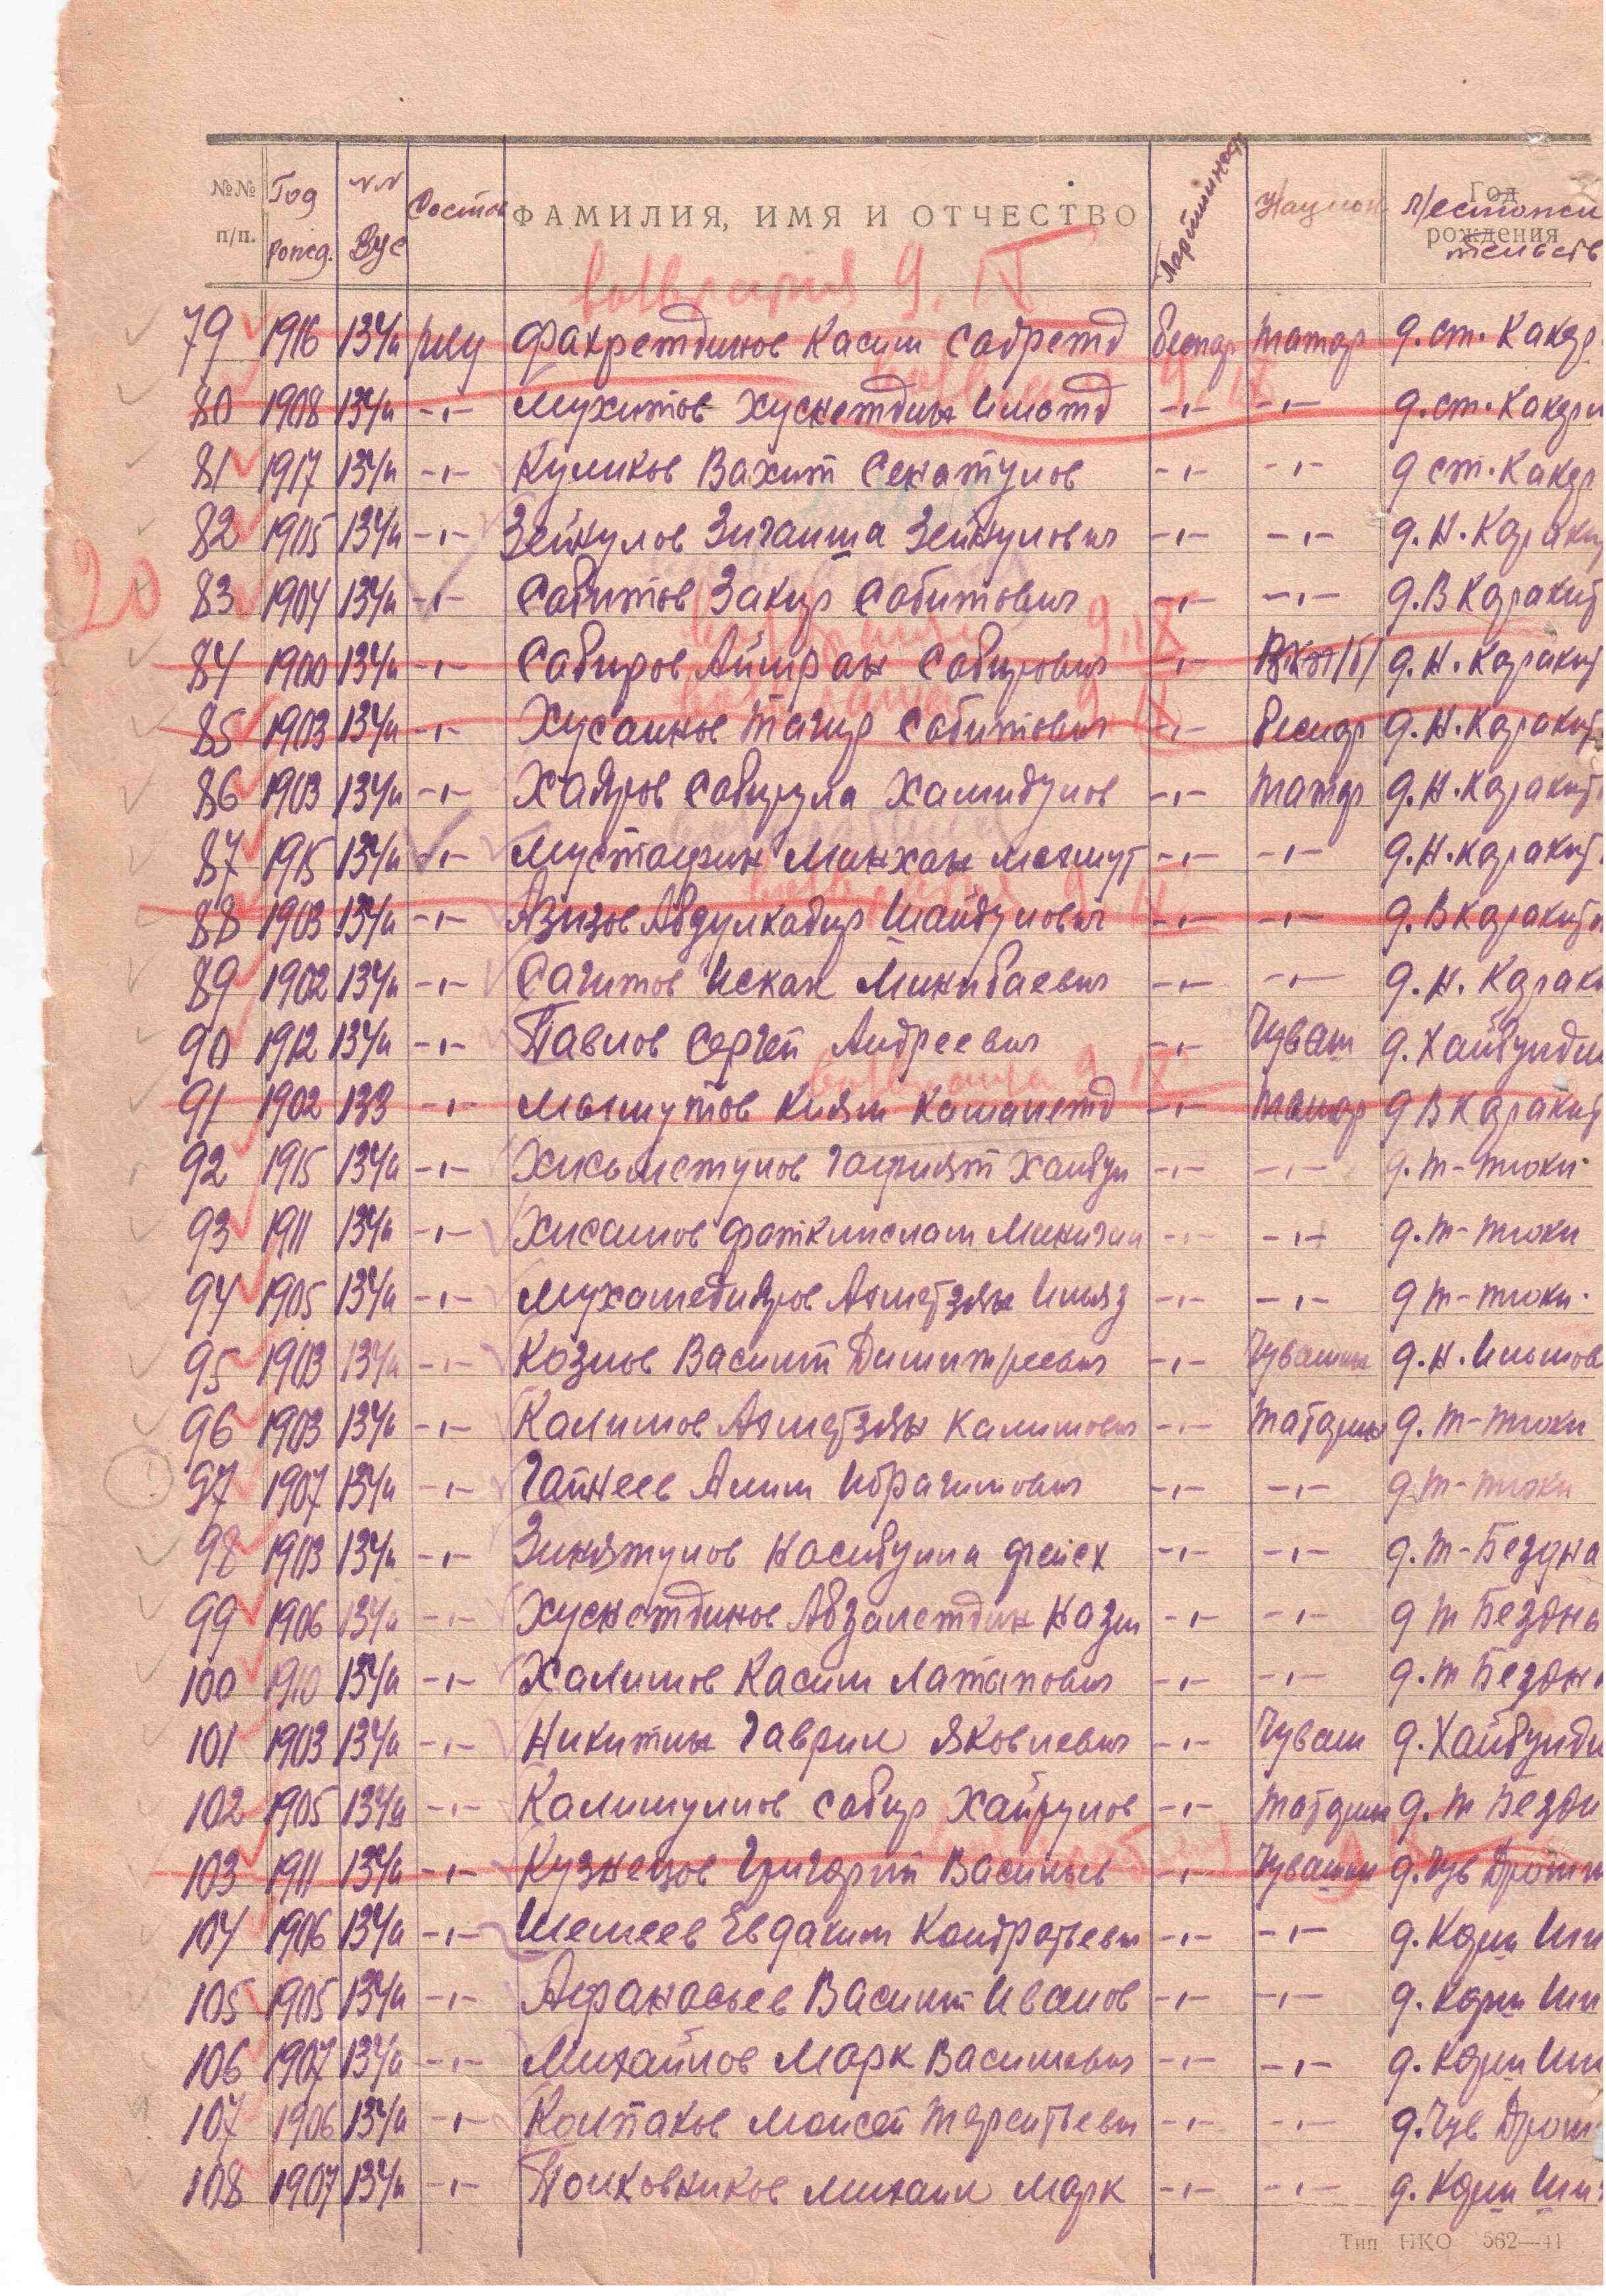 №№ п/п. Год рожд. №№ Вус Состав ФАМИЛИЯ, ИМЯ И ОТЧЕСТВО Партийност Национ. Год рождения Местожи тельств
возвращен 9. IX
79 1916 134/и Фахретдинов Касим Садретд беспар татар д. ст. Какер
возвращен 9. IX
80 1908 134/и -"- Мухитов Хуснетдин -"- -"- д. ст. Какерл
81 1917 134/и -"- Куликов Вахит Сенатулов -"- -"- д ст. Какер
82 1905 134/и -"- Зейнулов Зиганша Зейнулович -"- -"- д. Н. Каракит
20
83 1904 134/и -"- Сабитов Закир Сабитович -"- -"- д. В Каракит
возвращен 9. IX
84 1900 134/и -"- Сабиров Сабирович -"- д. Н. Каракит
возвращен 9. IX
85 1903 134/и -"- Хусаинов Тагир Сабитович -"- беспар д. Н. Каракит
86 1903 134/и -"- Хабиров Сабирула Хамидулов -"- татар д. Н. Каракит
87 1915 134/и -"- Мустафин Минхан Махмут -"- -"- д. Н. Каракит
возвращен 9 IX
88 1903 134/и -"- Азизов Абдулкадир Шайдулович -"- -"- д. В Каракит
89 1902 134/и -"- Сагитов Исхак Минибаевич -"- -"- д. Н. Караки
90 1912 134/и -"- Павлов Сергей Андреевич -"- Чуваш д. Хайбулди
возвращен 9 IX
91 1902 133 -"- Махмутов Киям Камалетд -"- татар д В Каракит
92 1915 134/и -"- Хисьметулов Гафият Хайбул -"- -"- д. Т-Тюки
93 1911 134/и -"- Хисамов Фаткислам -"- -"- д. Т-Тюки
94 1905 134/и -"- Ахметзян Ильяз -"- -"- д Т-Тюки.
95 1903 134/и -"- Козлов Василий Димитреевич -"- Чувашин д. Н. Ильмов
96 1903 134/и -"- Калимов Ахметзян Калимович -"- Татарин д. Т-Тюки
97 1907 134/и -"- Гайнеев Алим Ибрагимович -"- -"- д Т-Тюки
98 1903 134/и -"- Зинятулов Насибулла Фейсх -"- -"- д. Т-Бездна
99 1906 134/и -"- Хуснетдинов Абзалетдин Казм -"- -"- д Т Бездна
100 1910 134/и -"- Халимов Касим Латыпович -"- -"- д. Т Бездна
101 1903 134/и -"- Никитин Гаврил Яковлевич -"- Чуваш д. Хайбулди
102 1905 134/и -"- Калимуллов Сабир Хайрулов -"- Татарин д. Т Бездн
103 1911 134/и -"- Кузнецов Григорий Васильев -"- Чувашин д. Чув Дрожж
104 1906 134/и -"- Шемеев Евдаким Кондратьевич -"- -"- д. Кори Ши
105 1905 134/и -"- Афанасьев Василий Иванов -"- -"- д. Кори Ши
106 1907 134/и -"- Михайлов Марк Васильевич -"- -"- д. Кори Ши
107 1906 134/и -"- Колпаков Моисей Терентьевич -"- -"- д. Чув Дрож
108 1907 134/и -"- Полковников Михаил Марк -"- -"- д. Кори Ши
Тип НКО 562—41